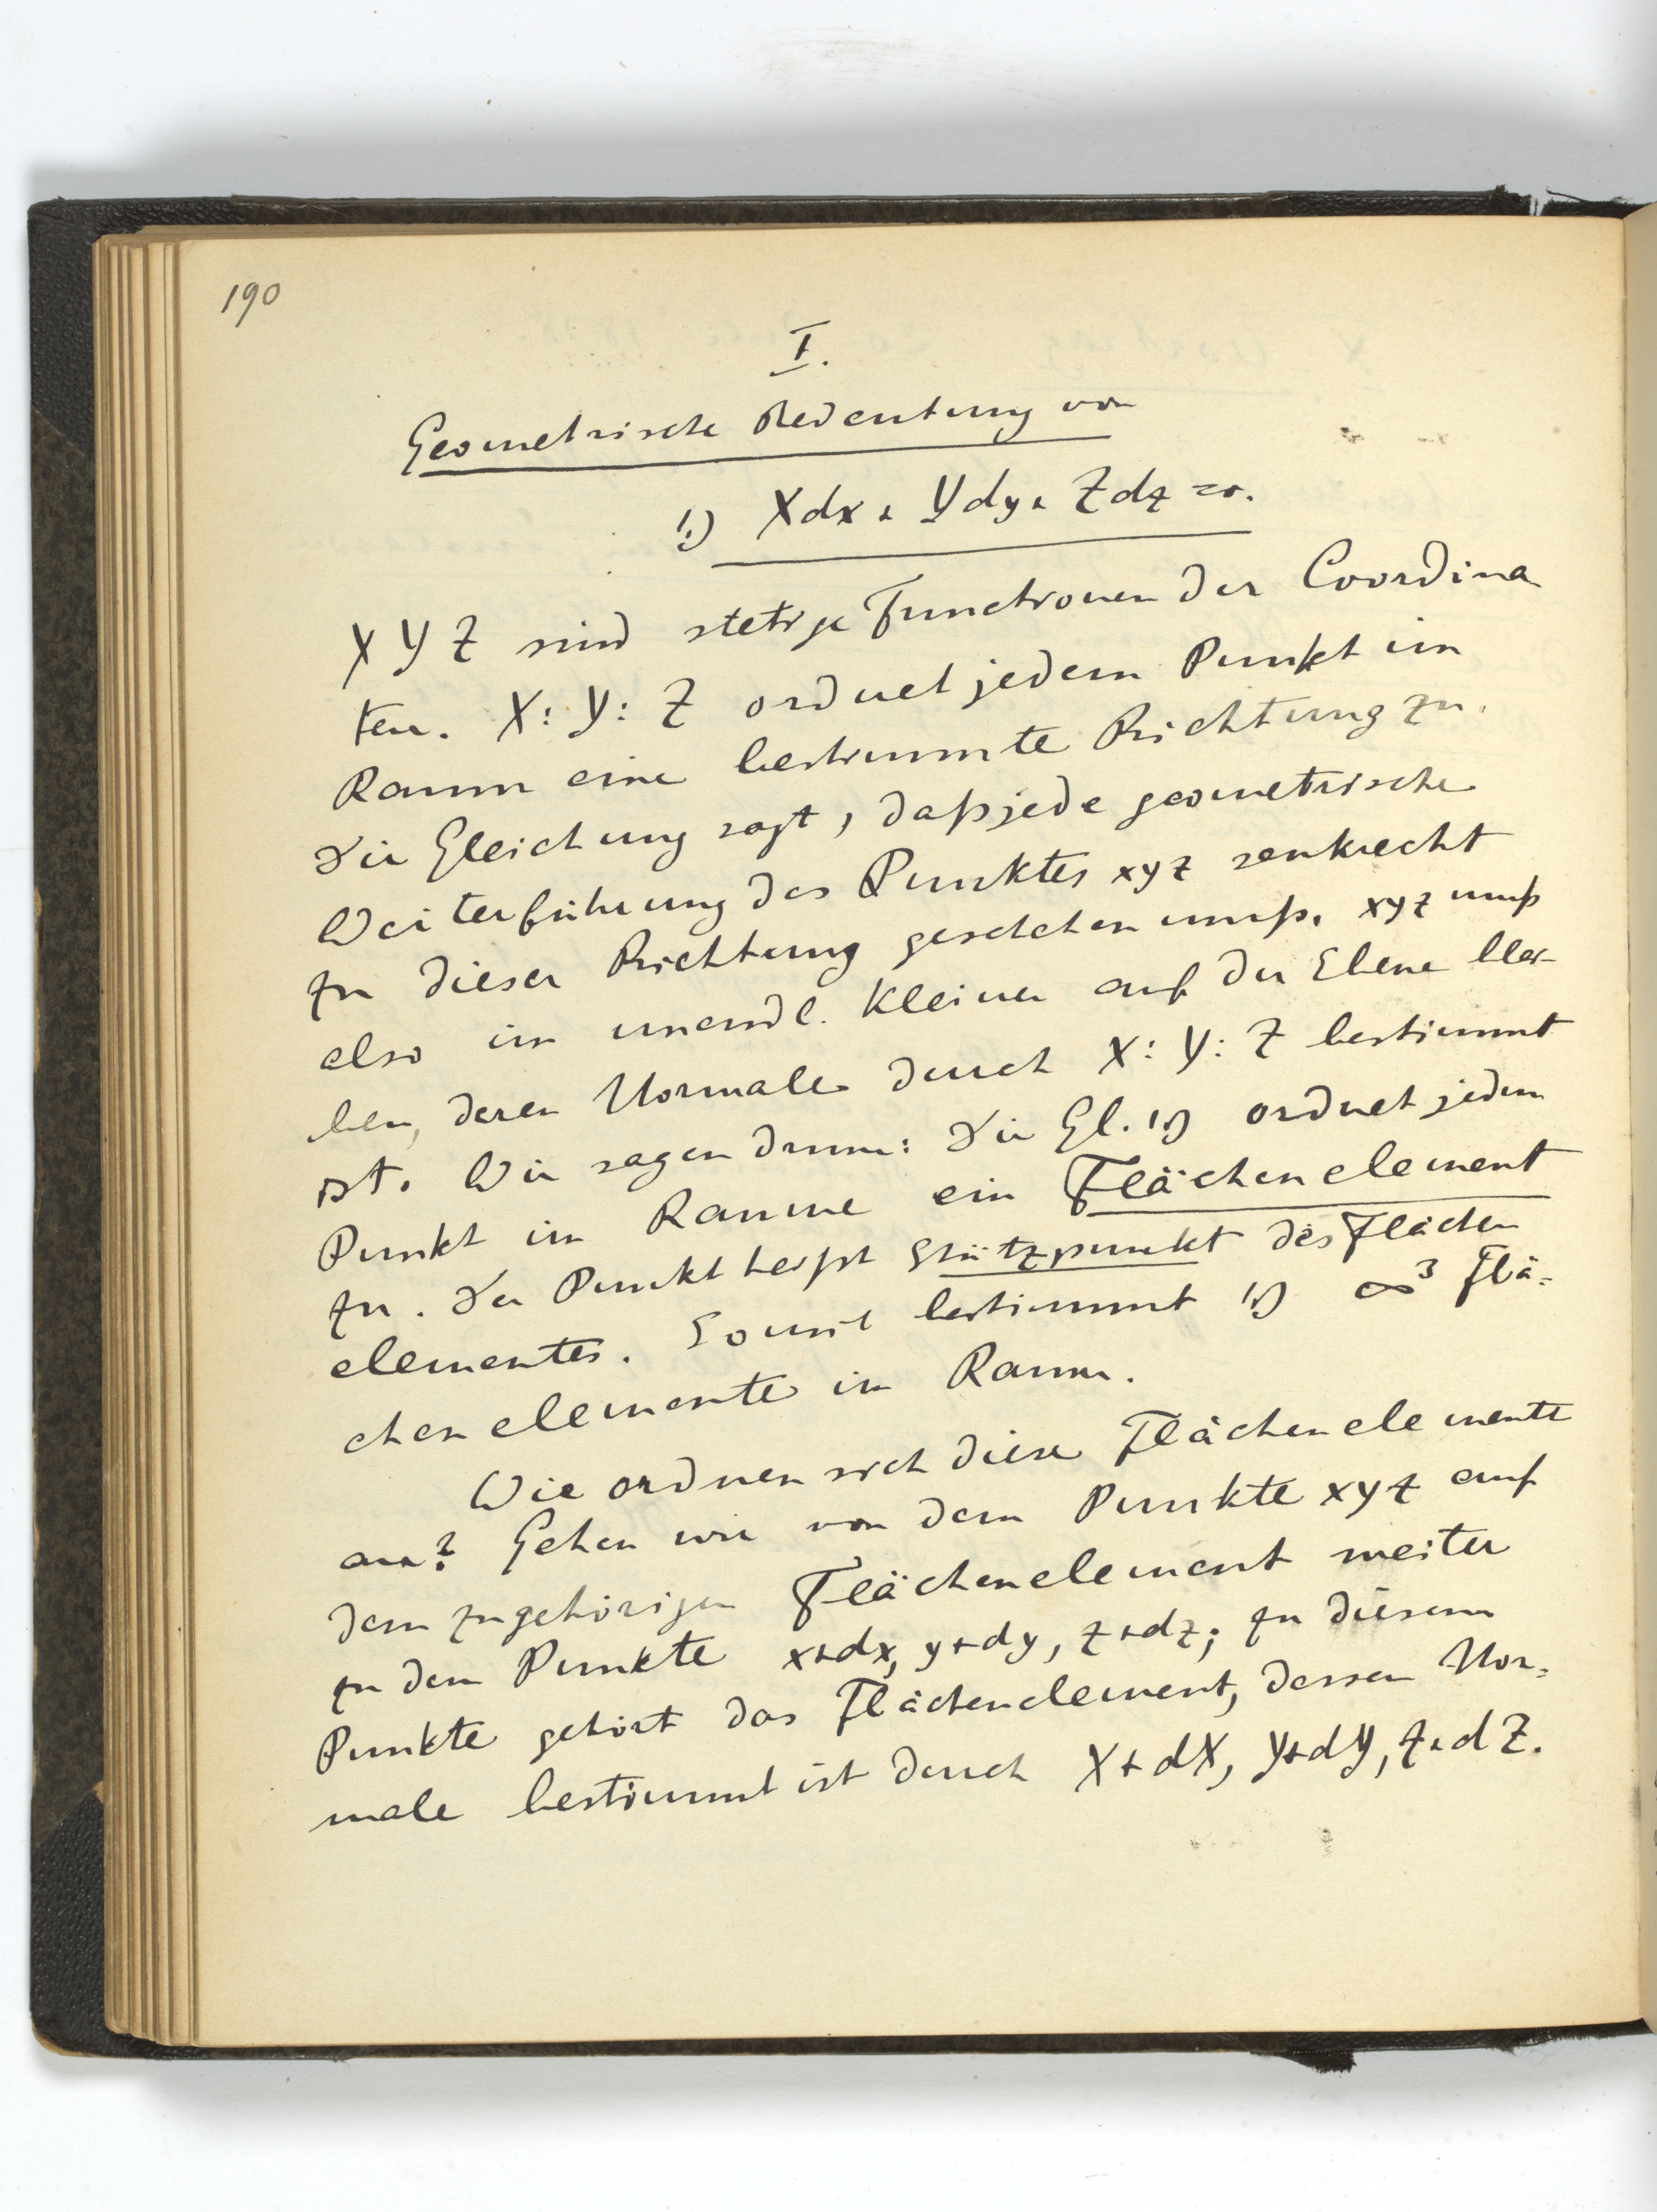 190
I.
Geometrische Bedeutung von
1.) Xdx + Ydy + Zdz = 0.
X Y Z sind stetige Functionen der Coordina
ten. X : Y : Z ordnet jedem Punkt im
Raum eine bestimmte Richtung zu.
Die Gleichung sagt, daß jede geometrische
Weiterführung des Punktes xyz senkrecht
zu dieser Richtung geschehen muß. xyz muß
also im unendl. Kleinen auf der Ebene blei-
ben, deren Normale durch X : Y : Z bestimmt
ist. Wir sagen drum: Die Gl. 1.) ordnet jedem
Punkt im Raume ein Flächenelement
zu. Der Punkt heißt Stützpunkt des Flächen
elementes. Somit bestimmt 1.) ∞³ Flä=
chenelemente im Raum.
Wie ordnen sich diese Flächenelemente
an? Gehen wir von dem Punkte xyz auf
dem zugehörigen Flächenelement weiter
zu dem Punkte x+dx, y+dy, z+dz; zu diesem
Punkte gehört das Flächenelement, dessen Nor=
male bestimmt ist durch X+dX, Y+dY, Z+dZ.